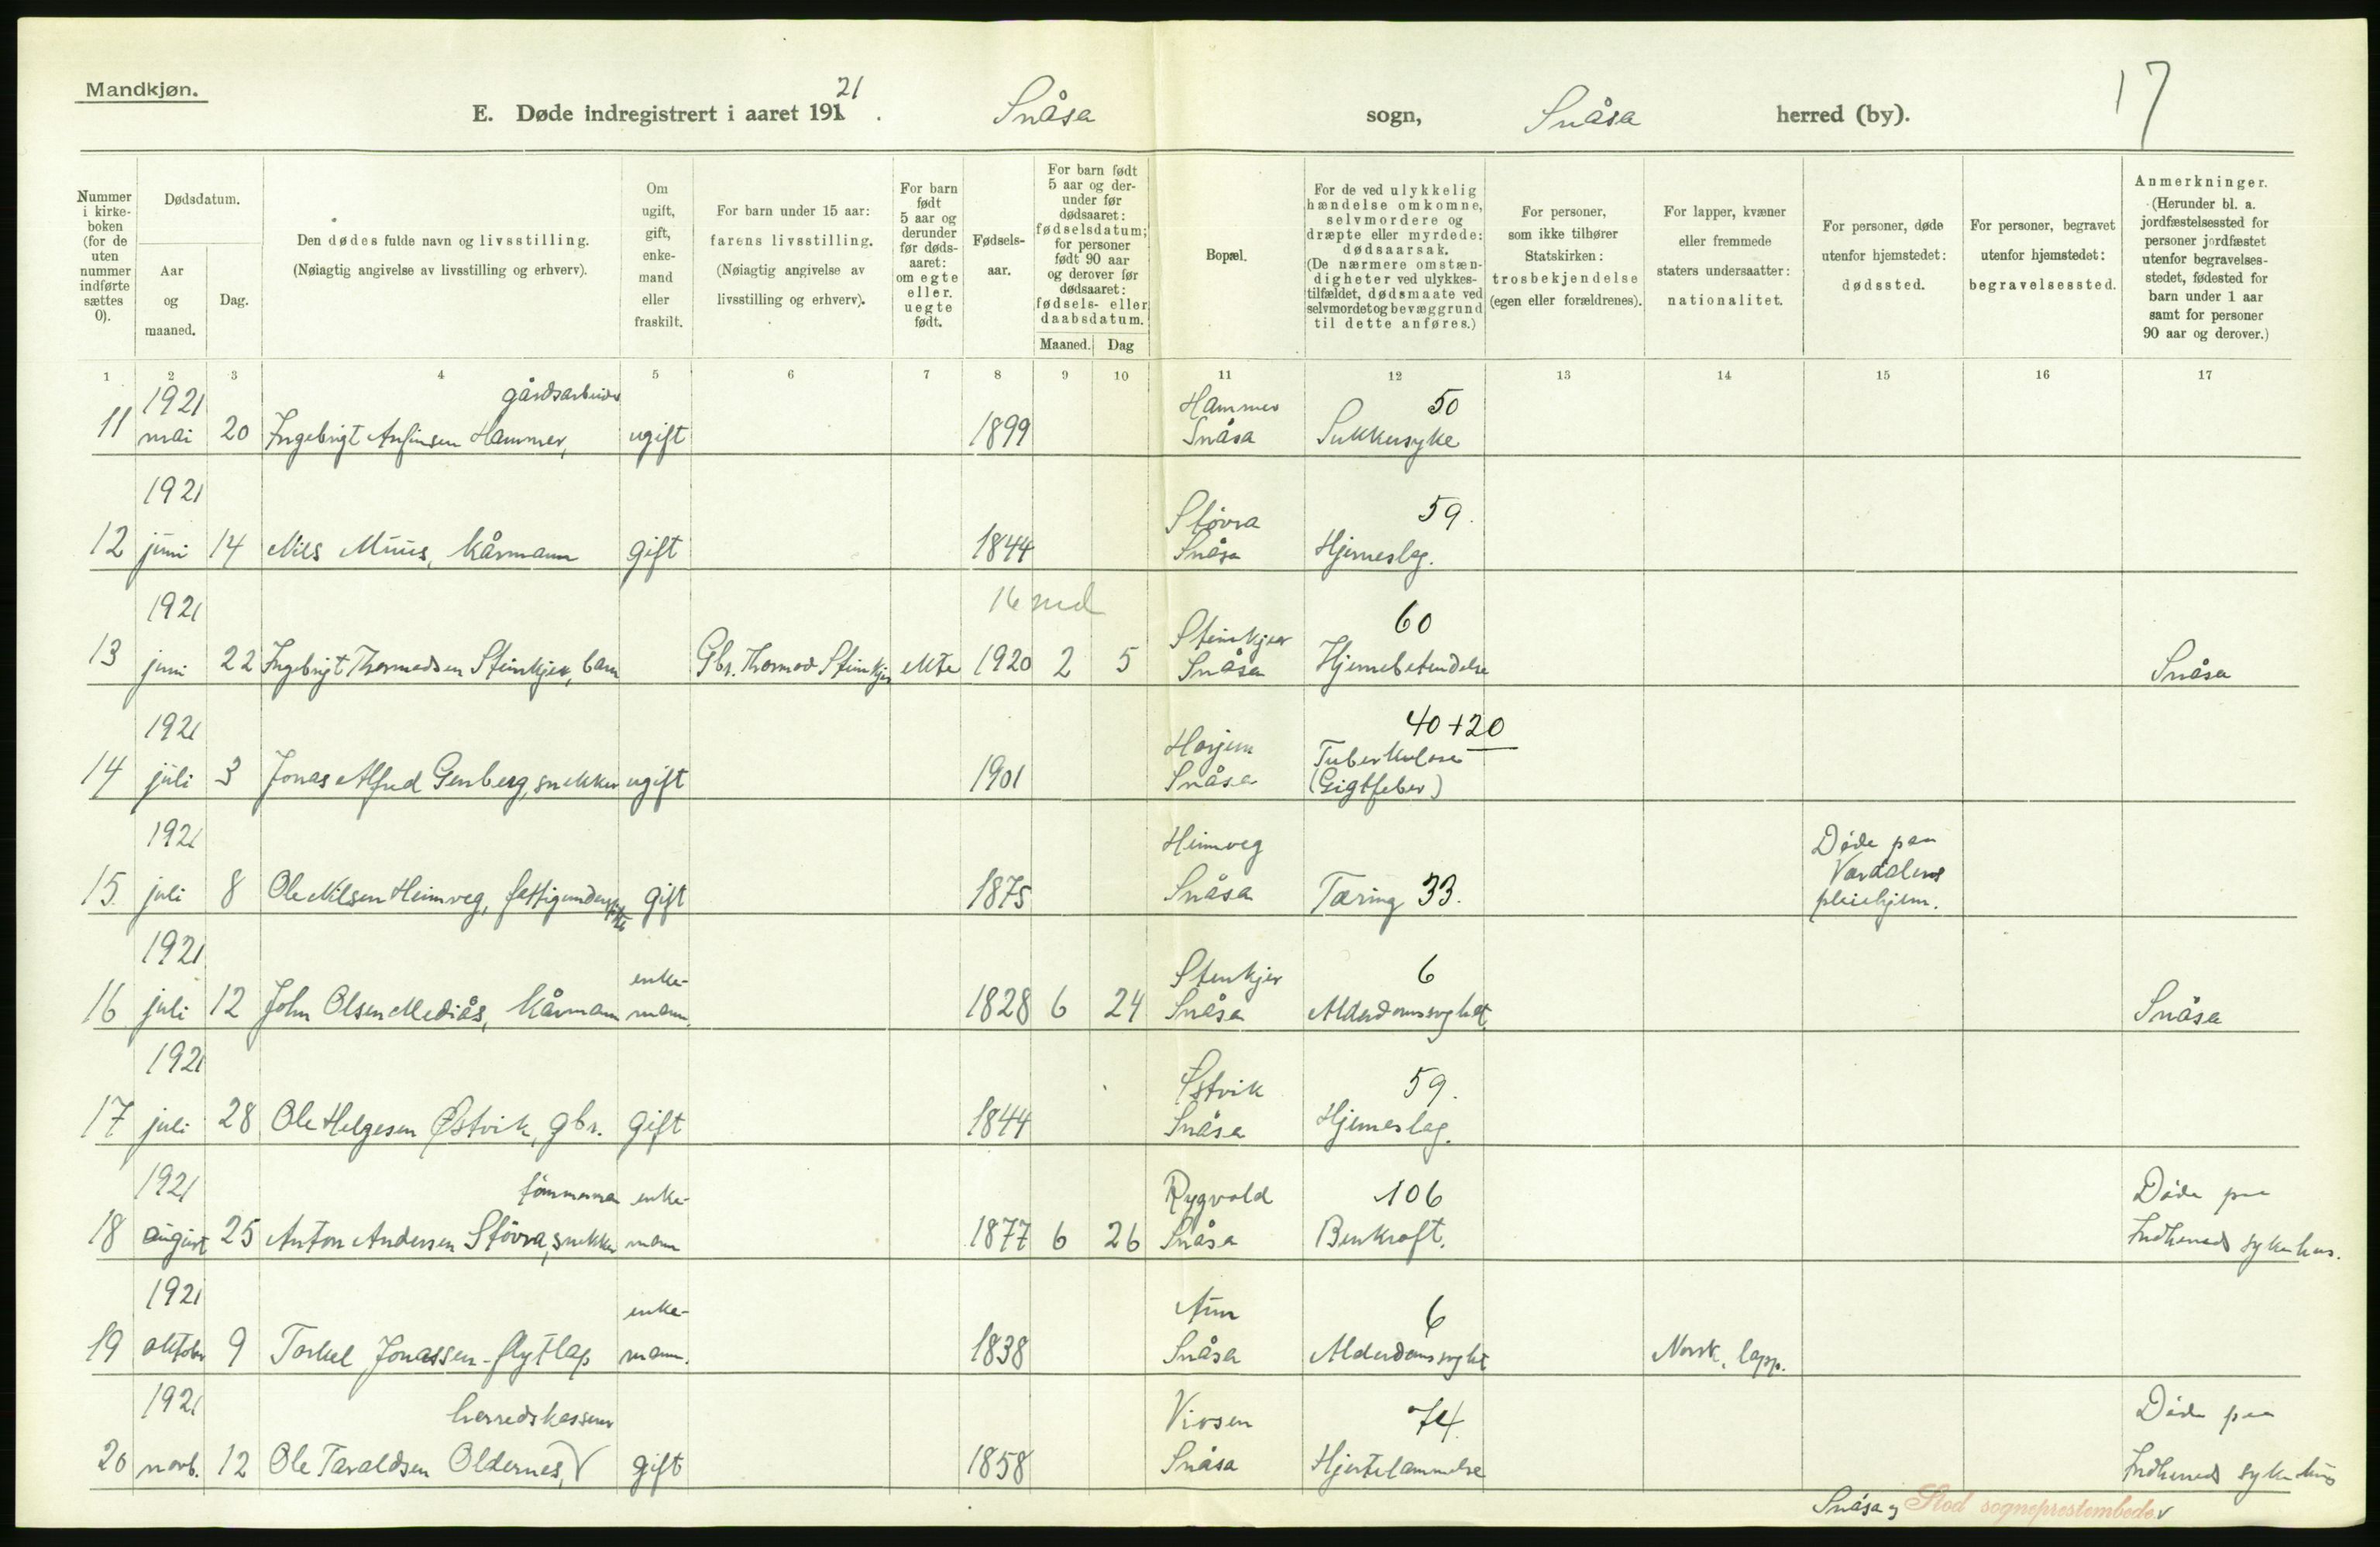 Mandkjøn.
E. Døde indregistrert i aaret 191 21. Snåsa sogn, Snåsa herred (by). 17
Nummer i kirke-boken (for de uten nummer indførte sættes 0).
Dødsdatum.
Aar og maaned.
Dag.
Den dødes fulde navn og livsstilling.
(Nøiagtig angivelse av livsstilling og erhverv).
Om ugift, gift, enke-mand eller fraskilt.
For barn under 15 aar:
farens livsstilling.
(Nøiagtig angivelse av livsstilling og erhverv).
For barn født 5 aar og derunder før døds-aaret: om egte eller uegte født.
Fødsels-aar.
For barn født 5 aar og der-under før dødsaaret: fødselsdatum; for personer født 90 aar og derover før dødsaaret: fødsels- eller daabsdatum.
Maaned. Dag
Bopæl.
For de ved ulykkelig hændelse omkomne, selvmordere og dræpte eller myrdede: dødsaarsak.
(De nærmere omstæn-digheter ved ulykkes-tilfældet, dødsmaate ved selvmordet og bevæggrund til dette anføres.)
For personer, som ikke tilhører Statskirken: trosbekjendelse (egen eller forældrenes).
For lapper, kvæner eller fremmede staters undersaatter: nationalitet.
For personer, døde utenfor hjemstedet: dødssted.
For personer, begravet utenfor hjemstedet: begravelsessted.
Anmerkninger.
(Herunder bl. a. jordfæstelsessted for personer jordfæstet utenfor begravelses-stedet, fødested for barn under 1 aar samt for personer 90 aar og derover.)
1 2 3 4 5 6 7 8 9 10 11 12 13 14 15 16 17
1921 gårdsarbeider Hammer 50
11 mai 20 Ingebrigt Anfinsen Hammer, ugift 1899 Snåsa Sukkersyke
1921 Støvra 59.
12 juni 14 Nils Muus, kårmann gift 1844 Snåsa Hjerneslag.
1921 16 md Steinkjer 60
13 juni 22 Ingebrigt Thormodsen Steinkjer, barn Gbr. Thormod Steinkjer ekte 1920 2 5 Snåsa Hjernebetendelse Snåsa
1921 Horjem 40+20
14 juli 3 Jonas Alfred Genberg, snekker ugift 1901 Snåsa Tuberkulose (Gigtfeber)
1921 Heimveg Døde paa Værdalens
15. juli 8 Ole Nilsen Heimveg, gift 1875 Snåsa Tæring 33. pleiehjem.
1921 enke- Stenkjer 6
16 juli 12 John Olsen Mediås, kårmann mann. 1828 6 24 Snåsa Alderdomssvaghet Snåsa
1921 Østvik 59.
17 juli 28 Ole Helgesen Østvik, gbr. gift 1844 Snåsa Hjerneslag.
1921 enke- Rygvold 106 Døde paa
18 august 25 Anton Andersen Støvra, snekker mann 1877 6 26 Snåsa Benkræft. Indherreds sykehus.
1921 enke- 6
19 oktober 9 Torkel Jonassen - flytlap mann. 1838 Snåsa Alderdomssvaghet Norsk, lapp.
1921 herredskasserer Vivsen 74. Døde paa
20 novb. 12 Ole Taraldsen Oldernes, gift 1858 Snåsa Hjertelammelse Indherreds sykehus
Snåsa og Stod sogneprestembede